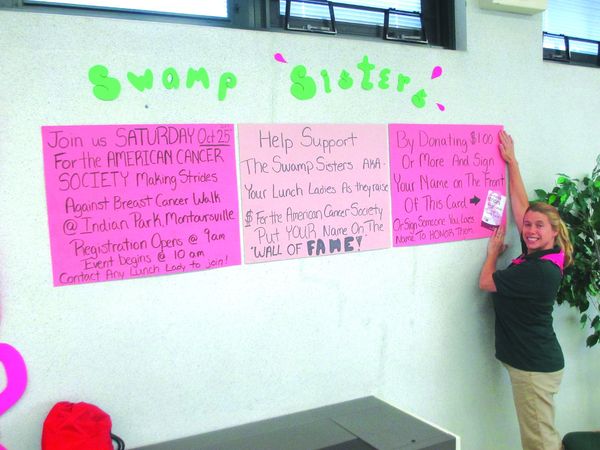 Swamp Sisters
Join us SATURDAY Oct 25
For the AMERICAN CANCER
SOCIETY Making Strides
Against Breast Cancer Walk
@ Indian Park, Montoursville
Registration Opens @ 9am
Event begins @ 10 am
Contact Any Lunch Lady to join!
Help Support
The Swamp Sisters AKA -
Your Lunch Ladies As they raise
$ For the American Cancer Society
Put YOUR Name On The
"WALL OF FAME!"
By Donating $1.00
Or More And Sign
Your Name on The Front
Of This Card →
Or Sign Someone You Loves
Name To HONOR Them